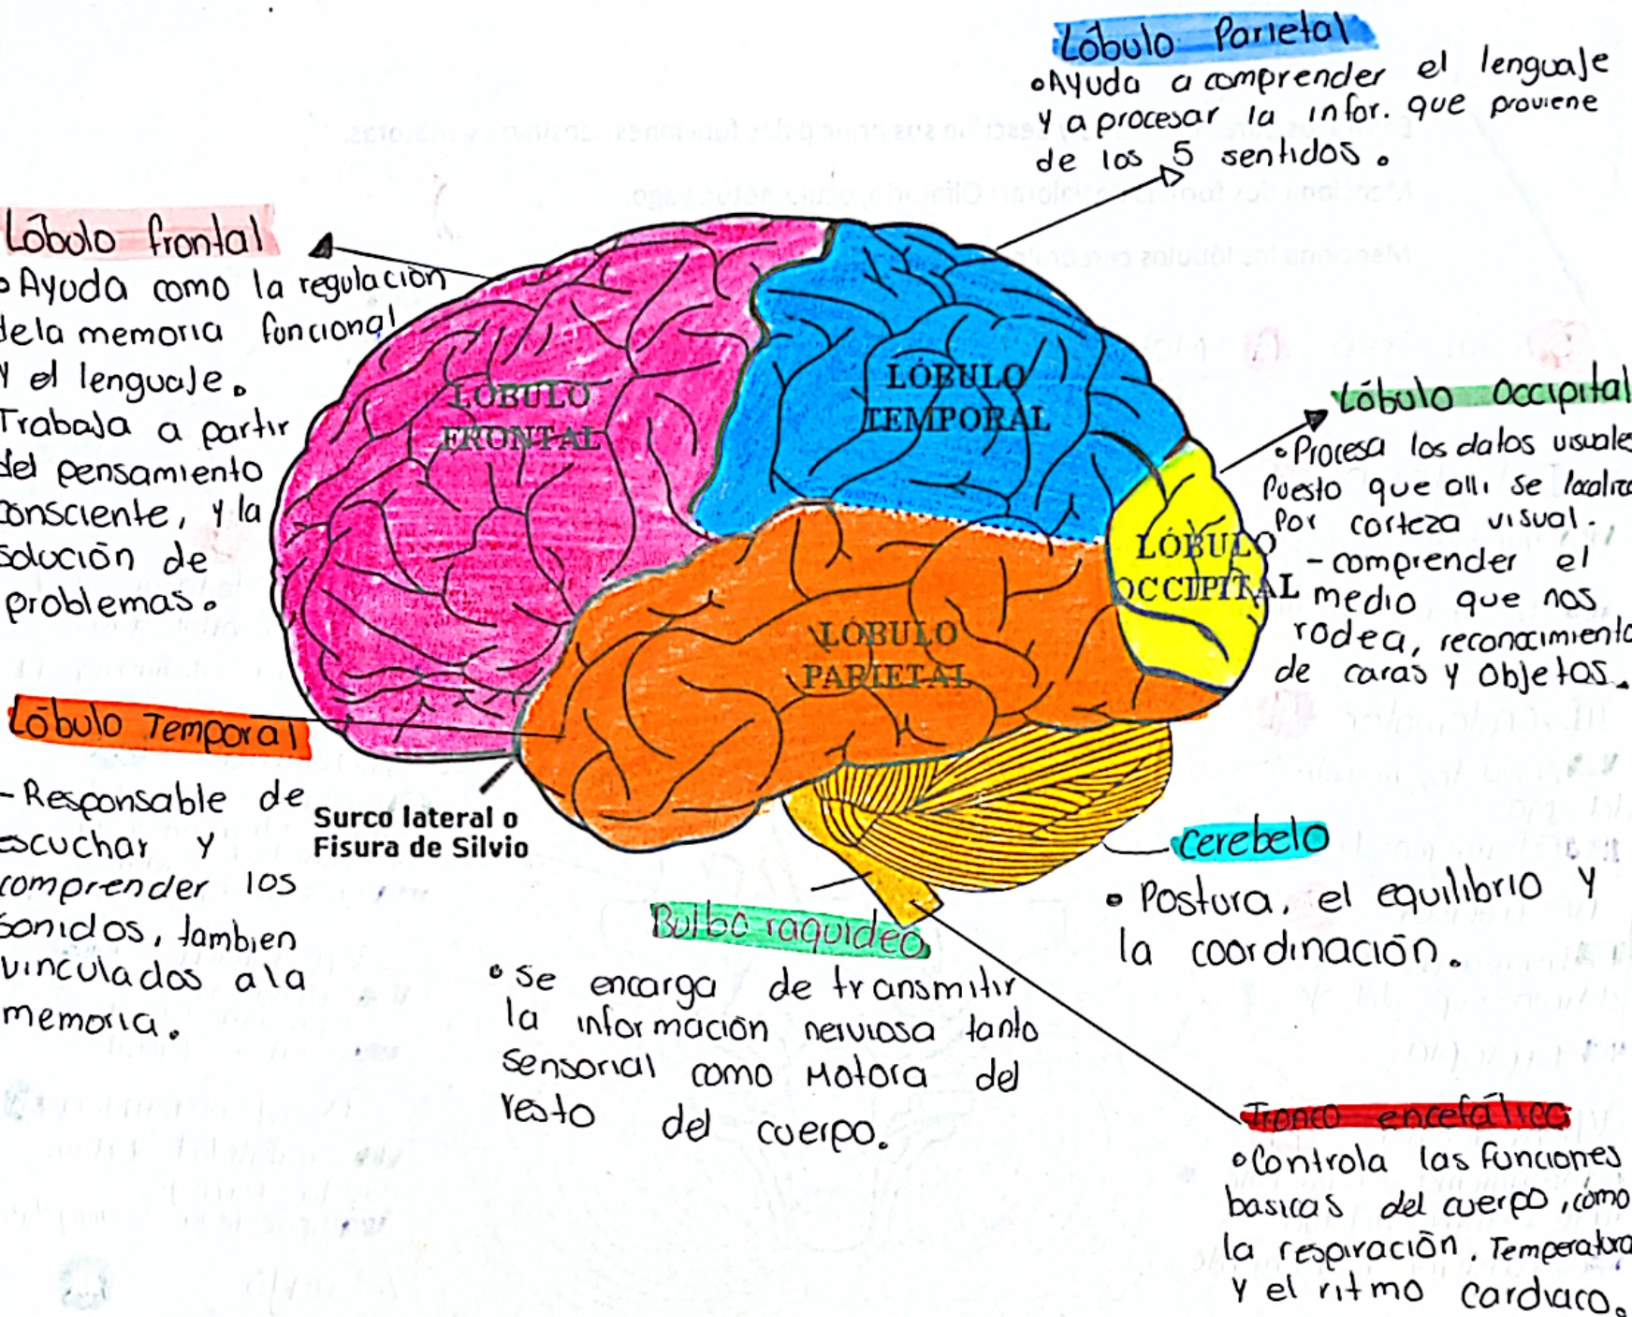 Lóbulo Parietal
Ayuda a comprender el lenguaje
y a procesar la infor. que proviene
de los 5 sentidos.
Lóbulo frontal
Ayuda como la regulación
dela memoria funcional
y el lenguaje.
Trabaja a partir
del pensamiento
consciente, y la
solución de
problemas.
LÓBULO
FRONTAL
LÓBULO
TEMPORAL
Lóbulo Occipital
Procesa los datos visuales
Puesto que alli se localiza
Por corteza visual.
-comprender el
medio que nos
rodea, reconocimiento
de caras y objetos.
LÓBULO
OCCIPITAL
LÓBULO
PARIETAL
Lóbulo Temporal
-Responsable de
escuchar y
comprender los
sonidos, tambien
vinculados ala
memoria.
Surco lateral o
Fisura de Silvio
Cerebelo
Postura, el equilibrio y
la coordinación.
Bulbo raquideo
se encarga de transmitir
la información nerviosa tanto
sensorial como Motora del
resto del cuerpo.
Tronco encefálico
Controla las funciones
basicas del cuerpo, como
la respiración, Temperatura
y el ritmo cardiaco.